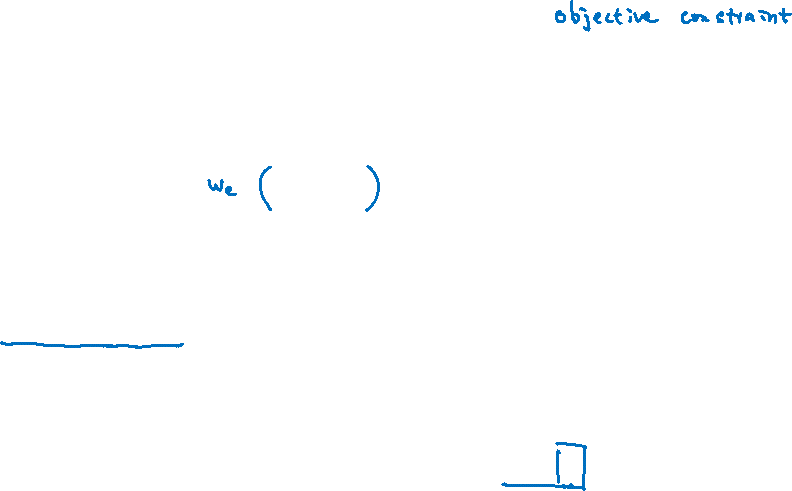 objective constraint
we (          )